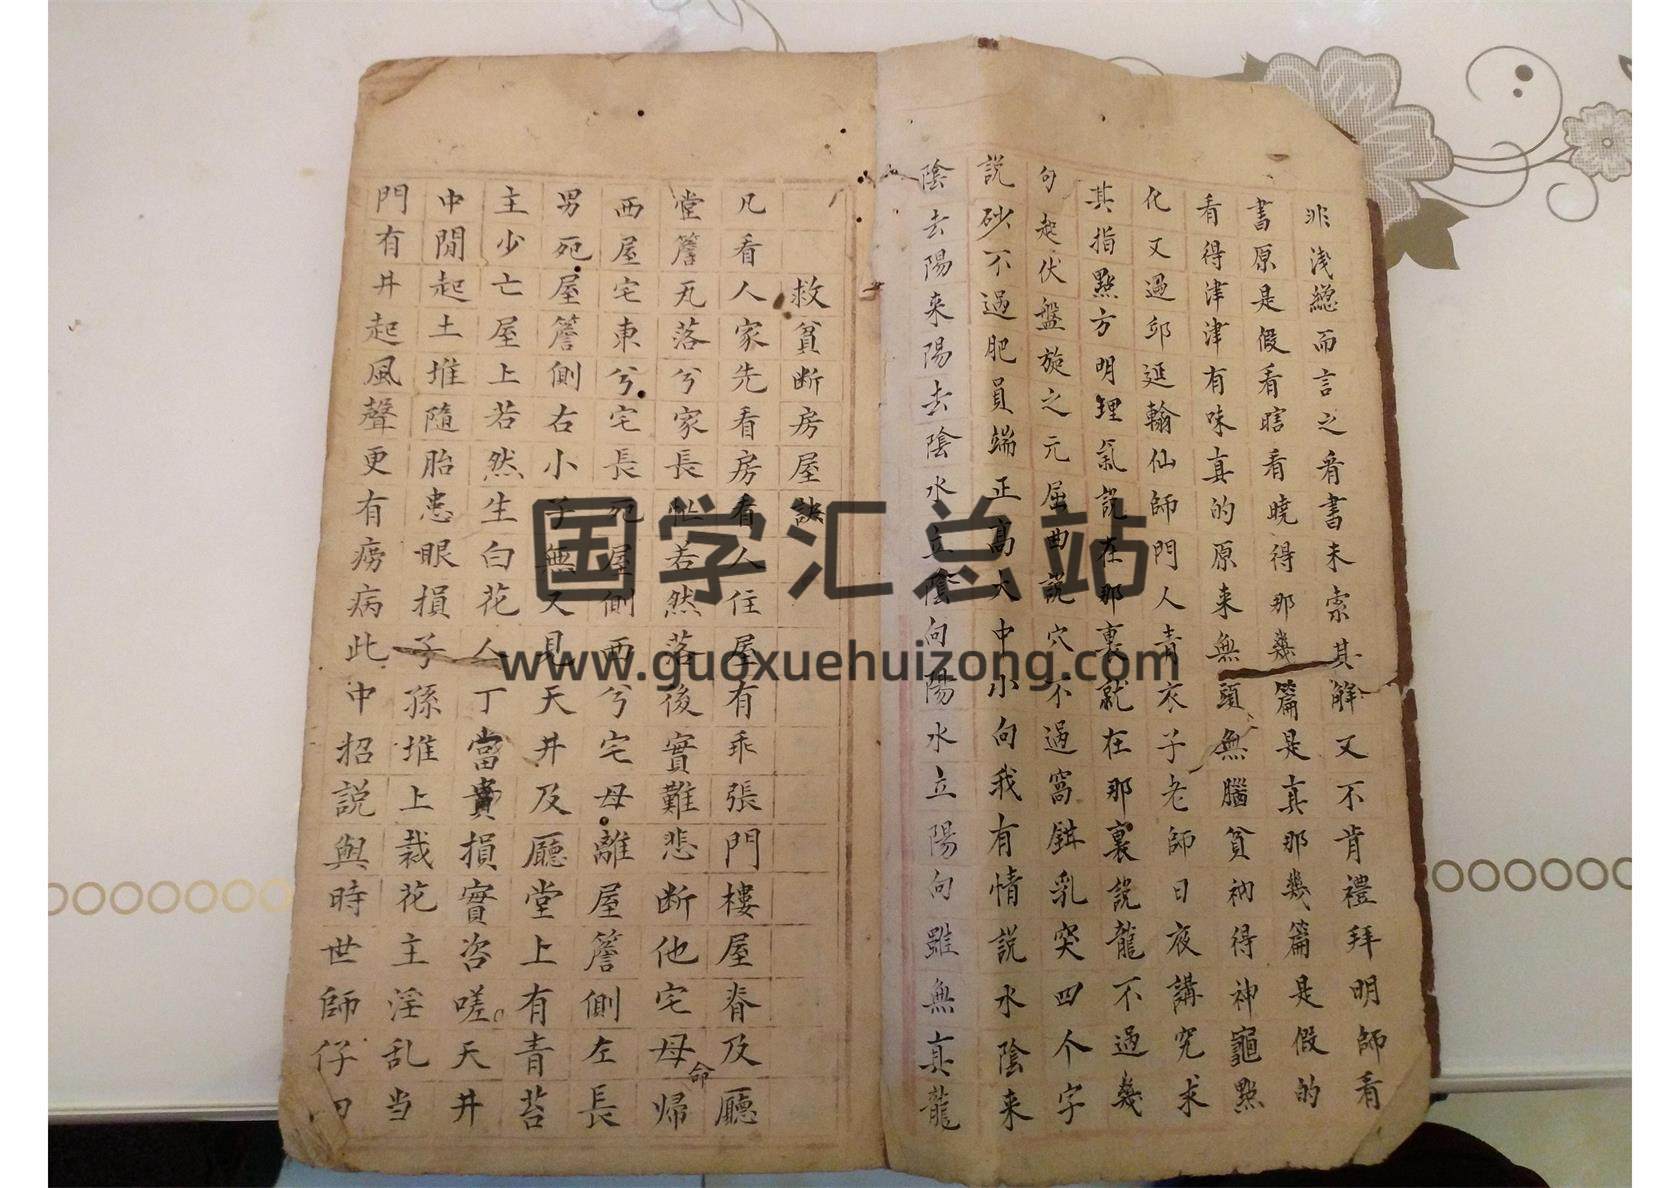 非浅總而言之看書未索其解又不肯禮拜明師看
書原是假看瞎看曉得那幾篇是真那幾篇是假的
看得津津有味真的原来無頭無腦貧衲得神龜點
化又過邱延翰仙師門人青衣子老師日夜講究求
其指點方明理氣說在那裏就在那裏說龍不過幾
句起伏盤旋之元屈曲說穴不過窩鉗乳突四个字
說砂不過肥員端正髙大中小向我有情說水陰来
陰去陽来陽去陰水立陰向陽水立陽向雖無真龍
救貧断房屋訣
凡看人家先看房看人住屋有乖張門樓屋脊及廳
堂簷瓦落兮家長 若然落後實難悲断他宅母命歸
西屋宅東兮宅長死屋側西兮宅母離屋簷側左長
男死屋簷側右小子無又見天井及廳堂上有青苔
主少亡屋上若然生白花人丁當貴損實咨嗟天井
中閒起土堆隨胎患眼損子孫堆上栽花主淫乱当
門有井起風聲更有痨病此中招説與時世師仔
国学汇总站
www.guoxuehuizong.com